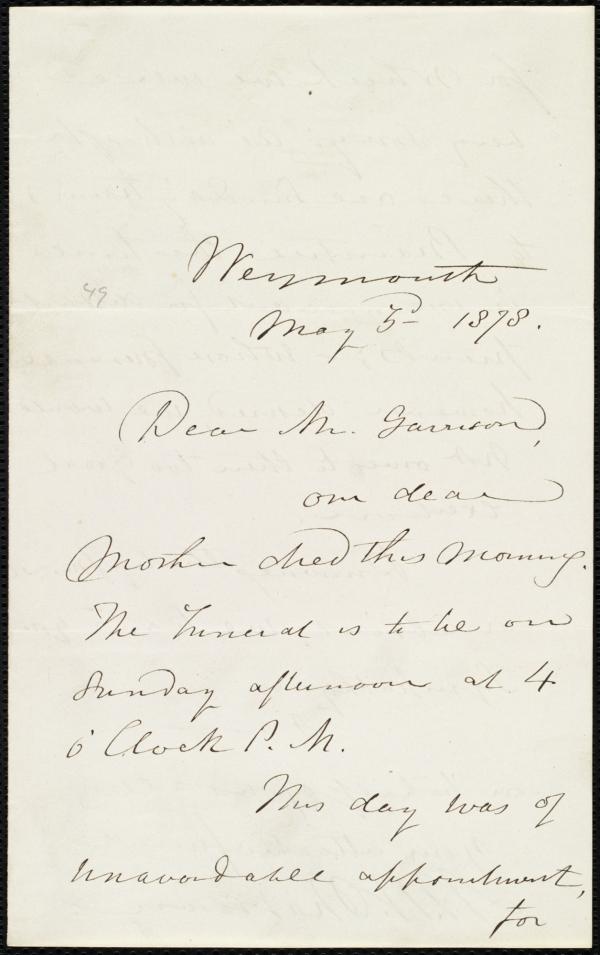 Weymouth
49
May 3d 1878.
Dear Mr. Garrison,
our dear
Mother died this morning.
The Funeral is to be on
Sunday afternoon at 4
o'Clock P. M.
This day was of
unavoidable appointment,
for